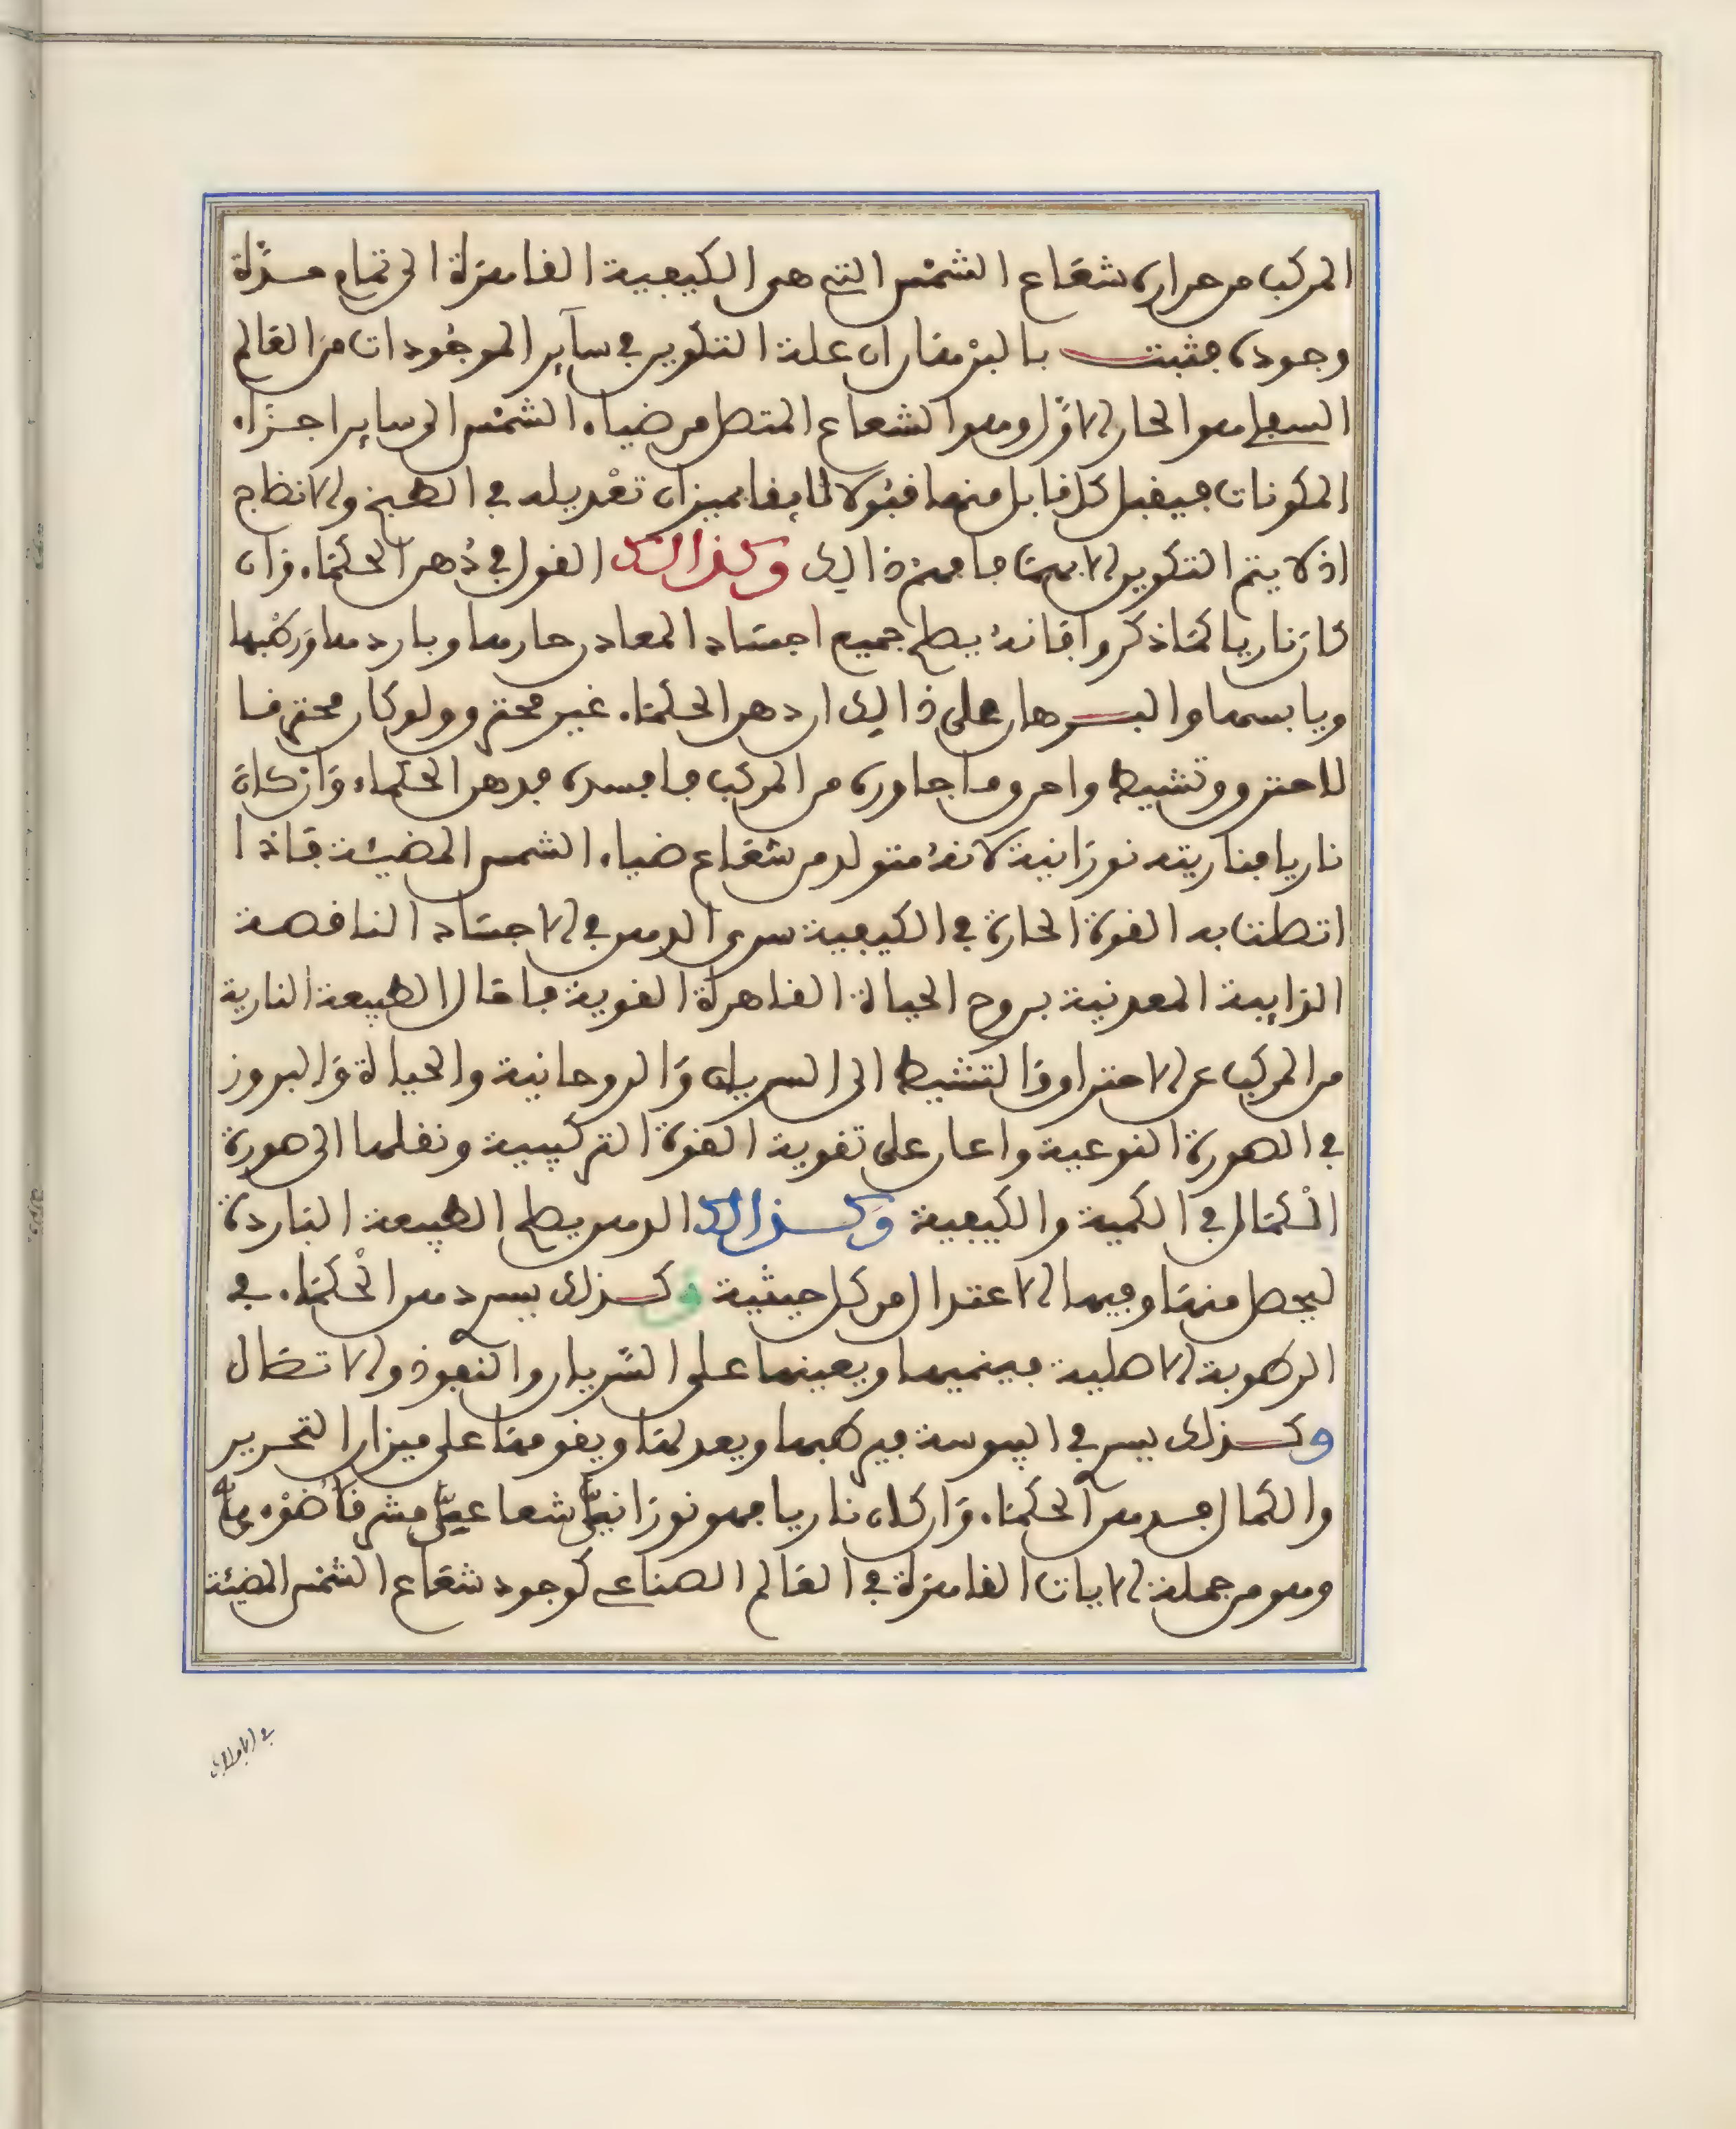 المركب من حرارة شعاع الشمس التي هي الكيفية الفاعلة الى تمام مدّة
وجوده فثبت بالبرهان ان علة التكوين في سآير الموجودات من العالم
السفلي هو الحار الاوّل وهو الشعاع المتصل من ضياء الشمس الى ساير اجزاء
المكونات فيقبل كل قابل منها قبولا لايقا بميزان تعديله في الطبخ والانضاج
اذ لا يتم التكوين الا بهما فافهم ذالك وكذالك القول في دُهن الحكماء وان
كان ناريا كما ذكروا فانهُ يصلح جميع اجساد المعادن حارها وباردها ورطبها
ويابسها والبرهان على ذالك ان دهن الحكماء غير محترق ولو كان محترقا
لاحترق وتشيط واحرق ما جاوره من المركب فافسده فدهن الحكماء وان كان
ناريا فناريته نورانية لانهُ متولد من شعاع ضياء الشمس المضيئة فاذا
اتصلت به القوة الحارة في الكيفية سرى الدهن في الاجساد الناقصة
الذايبة المعدنية بروح الحياة الظاهرة القوية فاحال الطبيعة النارية
من المركب عن الاحتراق والتشيط الى السريان والروحانية والحياة والبروز
في الصورة النوعية واعان على تقوية القوة التركيبية ونقلها الى صورة
الكمال في الكمية والكيفية وكذالك الدهن يصلح الطبيعة الباردة
ليحصل منها وفيها الاعتدال من كل حيثية وكذلك يسري دهن الحكماء في
الرطوبة الاصلية فينميها ويعينها على السّريان والنفوذ والاتصال
وكذلك يسري في اليبوسة فيرطبها ويعدلها ويقومها على ميزان التحرير
والكمال فدهن الحكماء وان كان ناريا فهو نورانيّ شعاعيّ مشرق
وهو من جملة الايات الفاعلة في العالم الصناعي كوجود شعاع الشمس المضيئة